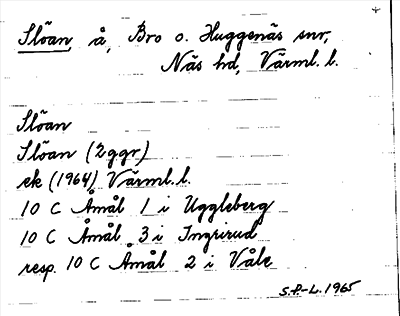 Slöan å, Bro o. Huggenäs snr,
Näs hd, Värml. l.
Slöan
Slöan (2ggr)
ek (1964) Värml. l.
10 C Åmål 1 i Uggleberg
10 C Åmål 3 i Ingrirud
resp. 10 C Åmål 2 i Våle
S.P.-L. 1965